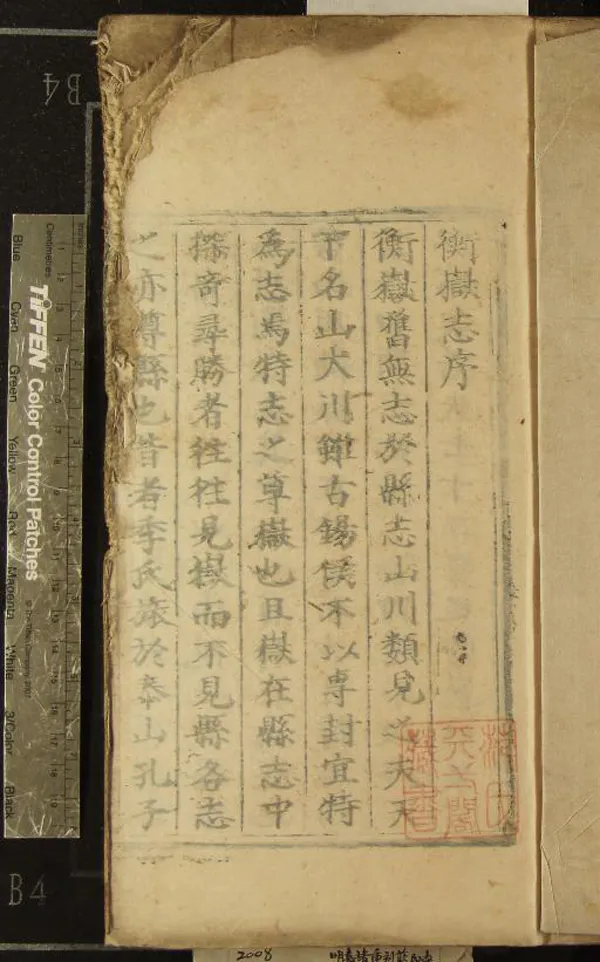 衡嶽志序
衡嶽舊無志於縣志山川類見之夫天
下名山大川雖古錫侯不以専封宜特
為志焉特志之草嶽也且嶽在縣志中
探奇尋勝者往往見嶽而不見縣各志
之亦尊縣也昔者季氏旅於泰山孔子
B4
B4
Inches
Centimetres
TIFFEN Color Control Patches
Blue
Cyan
Green
Yellow
Red
Magenta
White
3/Color
Black
2008